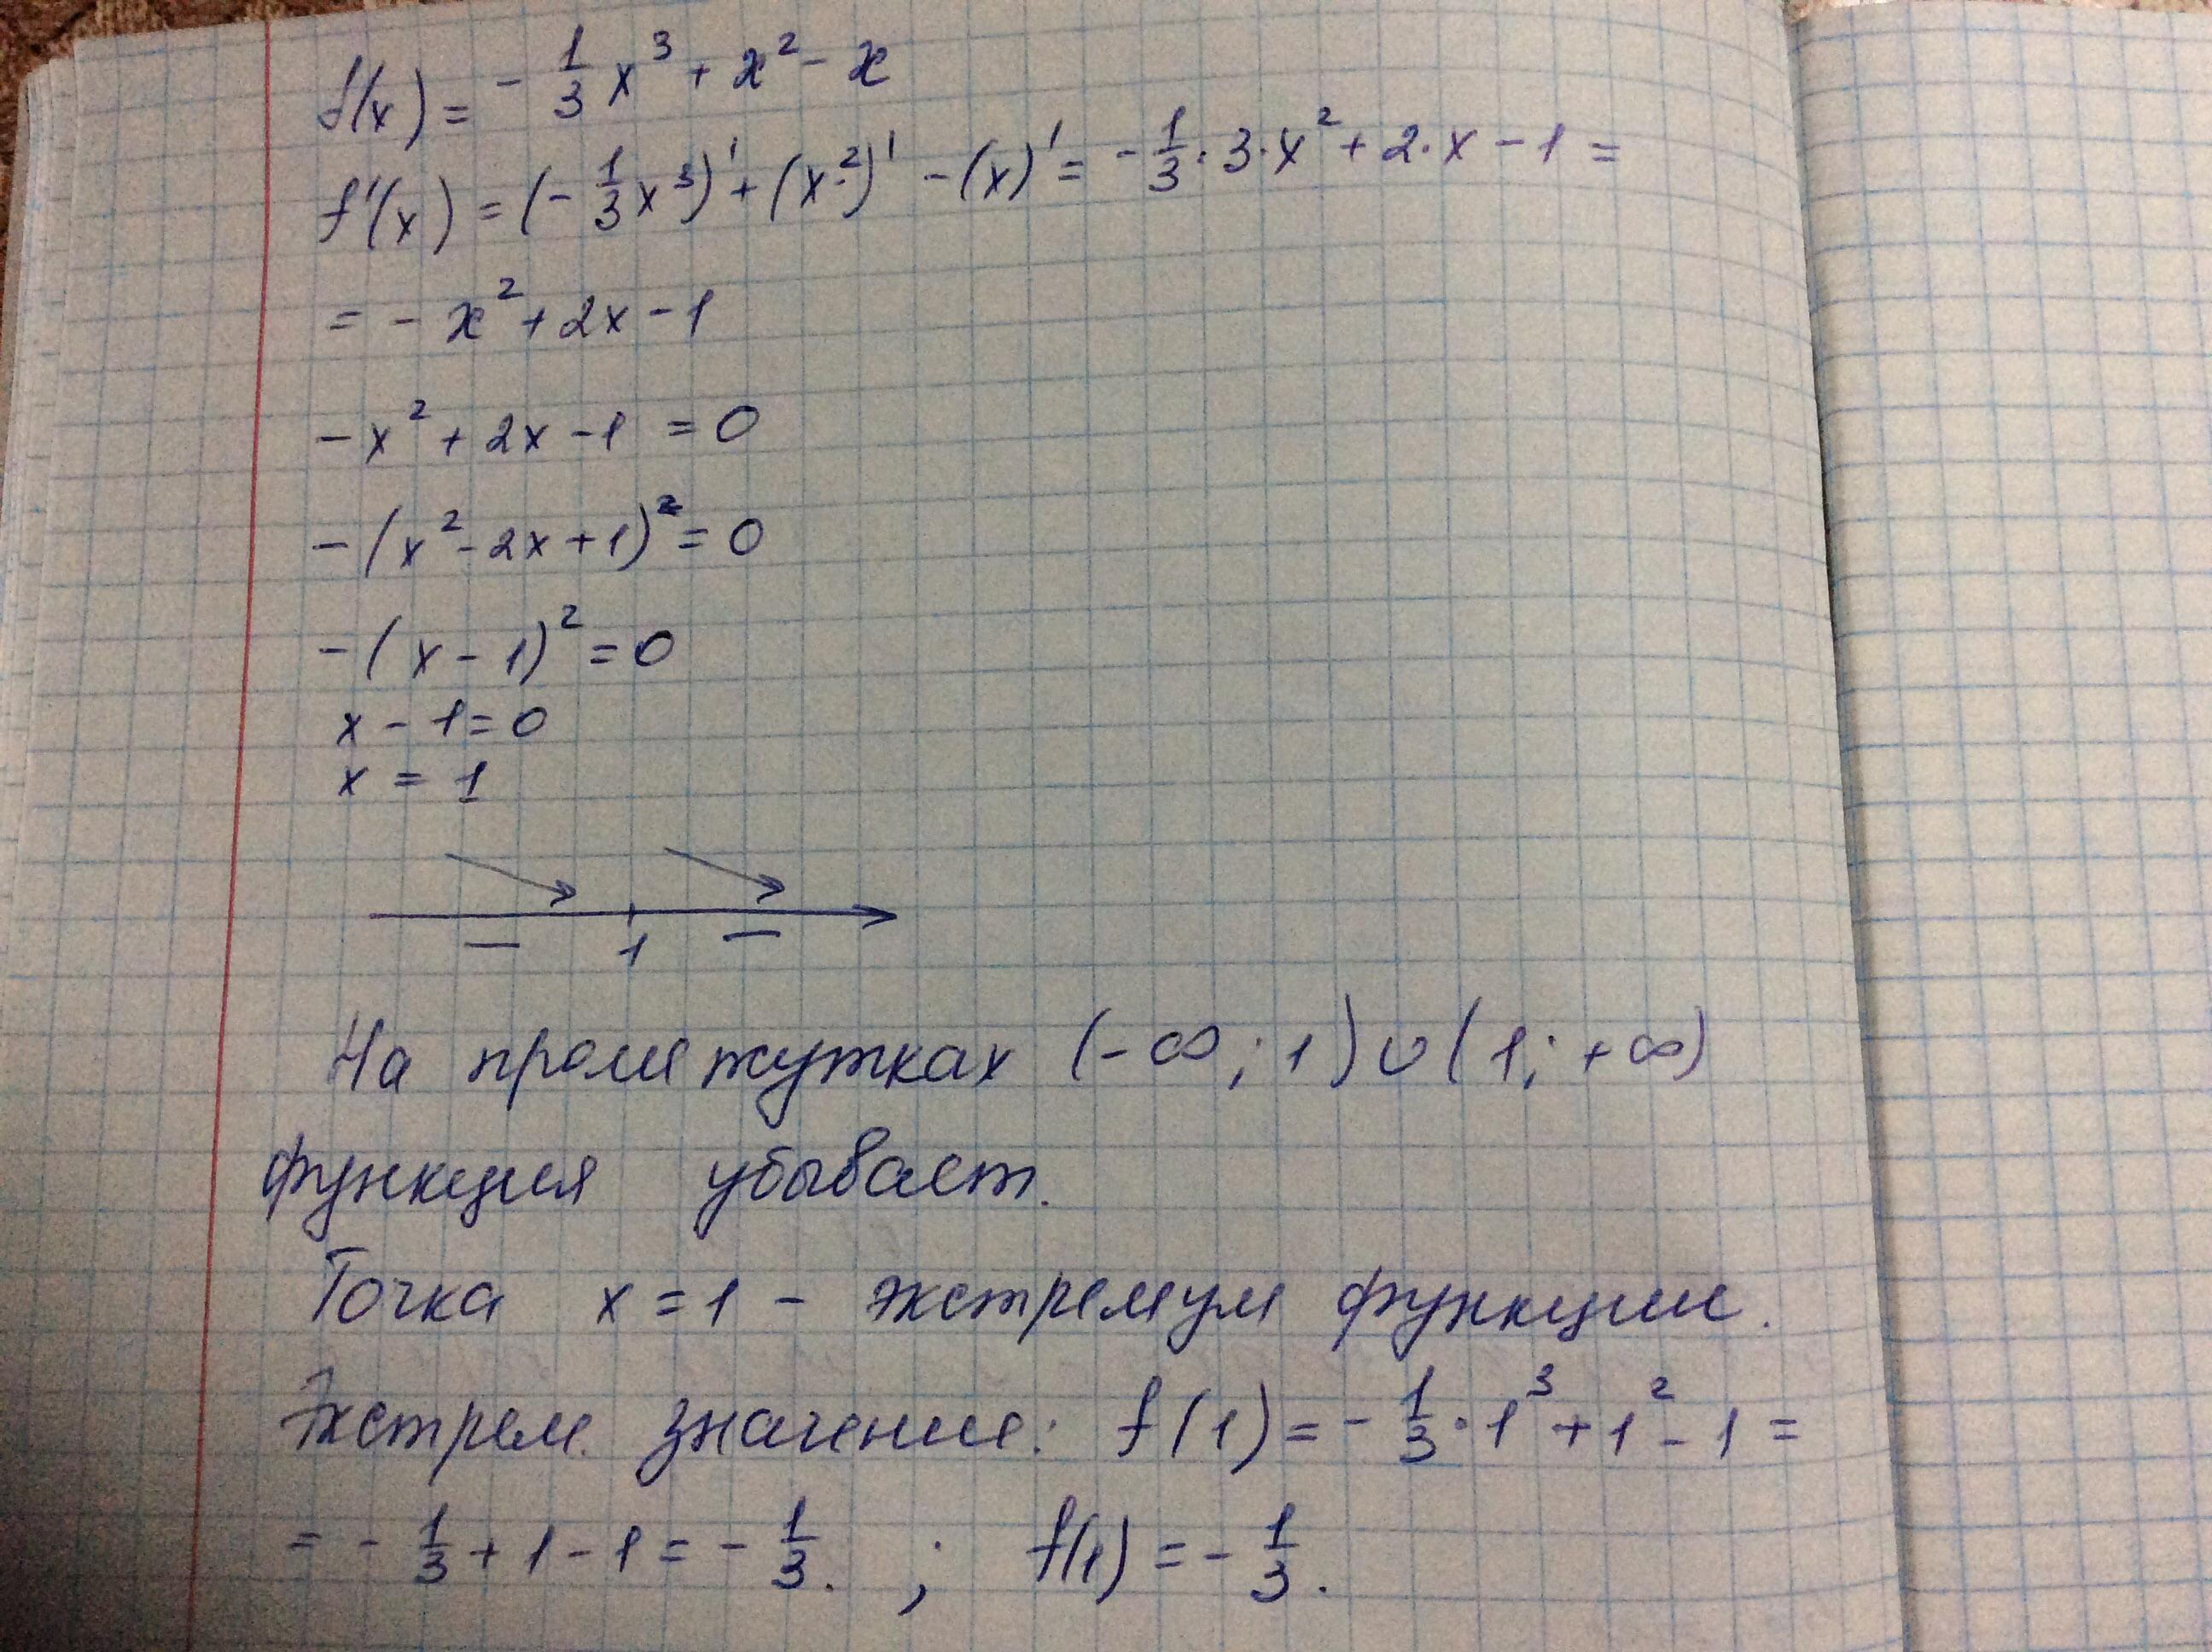 f(x) = - 1/3 x³ + x² - x
f'(x) = (- 1/3 x³)' + (x²)' - (x)' = - 1/3 · 3 · x² + 2 · x - 1 =
= - x² + 2x - 1
- x² + 2x - 1 = 0
- (x² - 2x + 1)² = 0
- (x - 1)² = 0
x - 1 = 0
x = 1
— 1 —
На промежутках (-∞; 1) ∪ (1; +∞)
функция убывает.
Точка x = 1 - экстремум функции.
Экстрем. значение: f(1) = - 1/3 · 1³ + 1² - 1 =
= - 1/3 + 1 - 1 = - 1/3. ; f(1) = - 1/3.